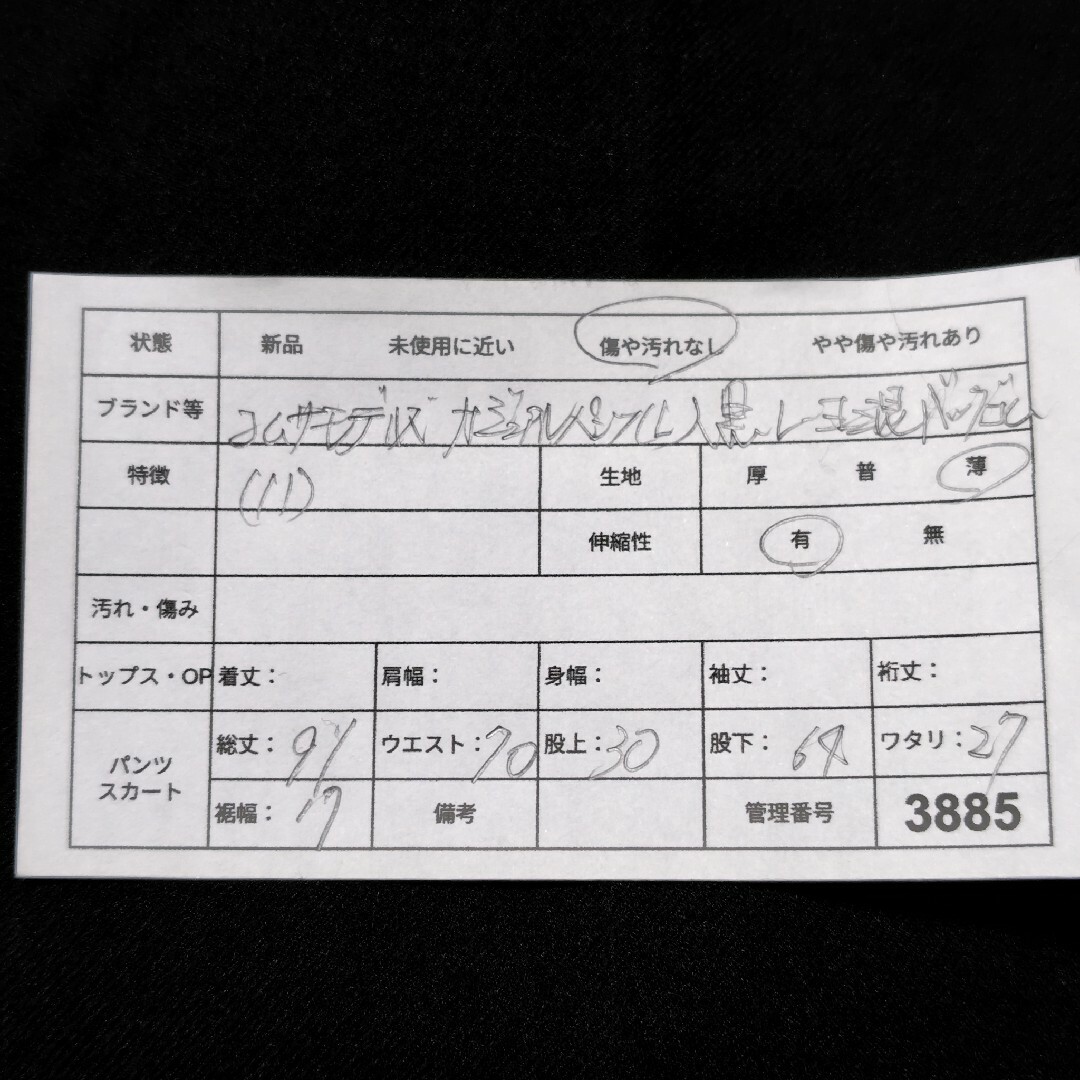 状態 新品 未使用に近い 傷や汚れなし やや傷や汚れあり
ブランド等 コムサモデルズ カジュアルパンツ(L)黒
特徴 (11) 生地 厚 普 薄
伸縮性 有 無
汚れ・傷み
トップス・OP 着丈: 肩幅: 身幅: 袖丈: 裄丈:
パンツ スカート
総丈: 91 ウエスト: 70 股上: 30 股下: 64 ワタリ: 27
裾幅: 17 備考 管理番号 3885